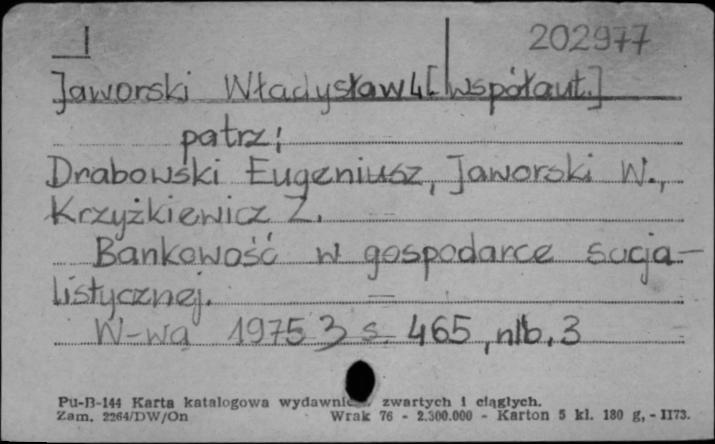 I 202977
Jaworski Władysław 4 [współaut.]
patrz:
Drabowski Eugeniusz, Jaworski W.,
Krzyżkiewicz Z.
Bankowość w gospodarce socja-
listycznej.
W-wa 1975 s. 465, nlb. 3
Pu-B-144 Karta katalogowa wydawnictw zwartych i ciągłych.
Zam. 2264/DW/On Wrak 76 - 2.300.000 - Karton 5 kl. 180 g, - II73.